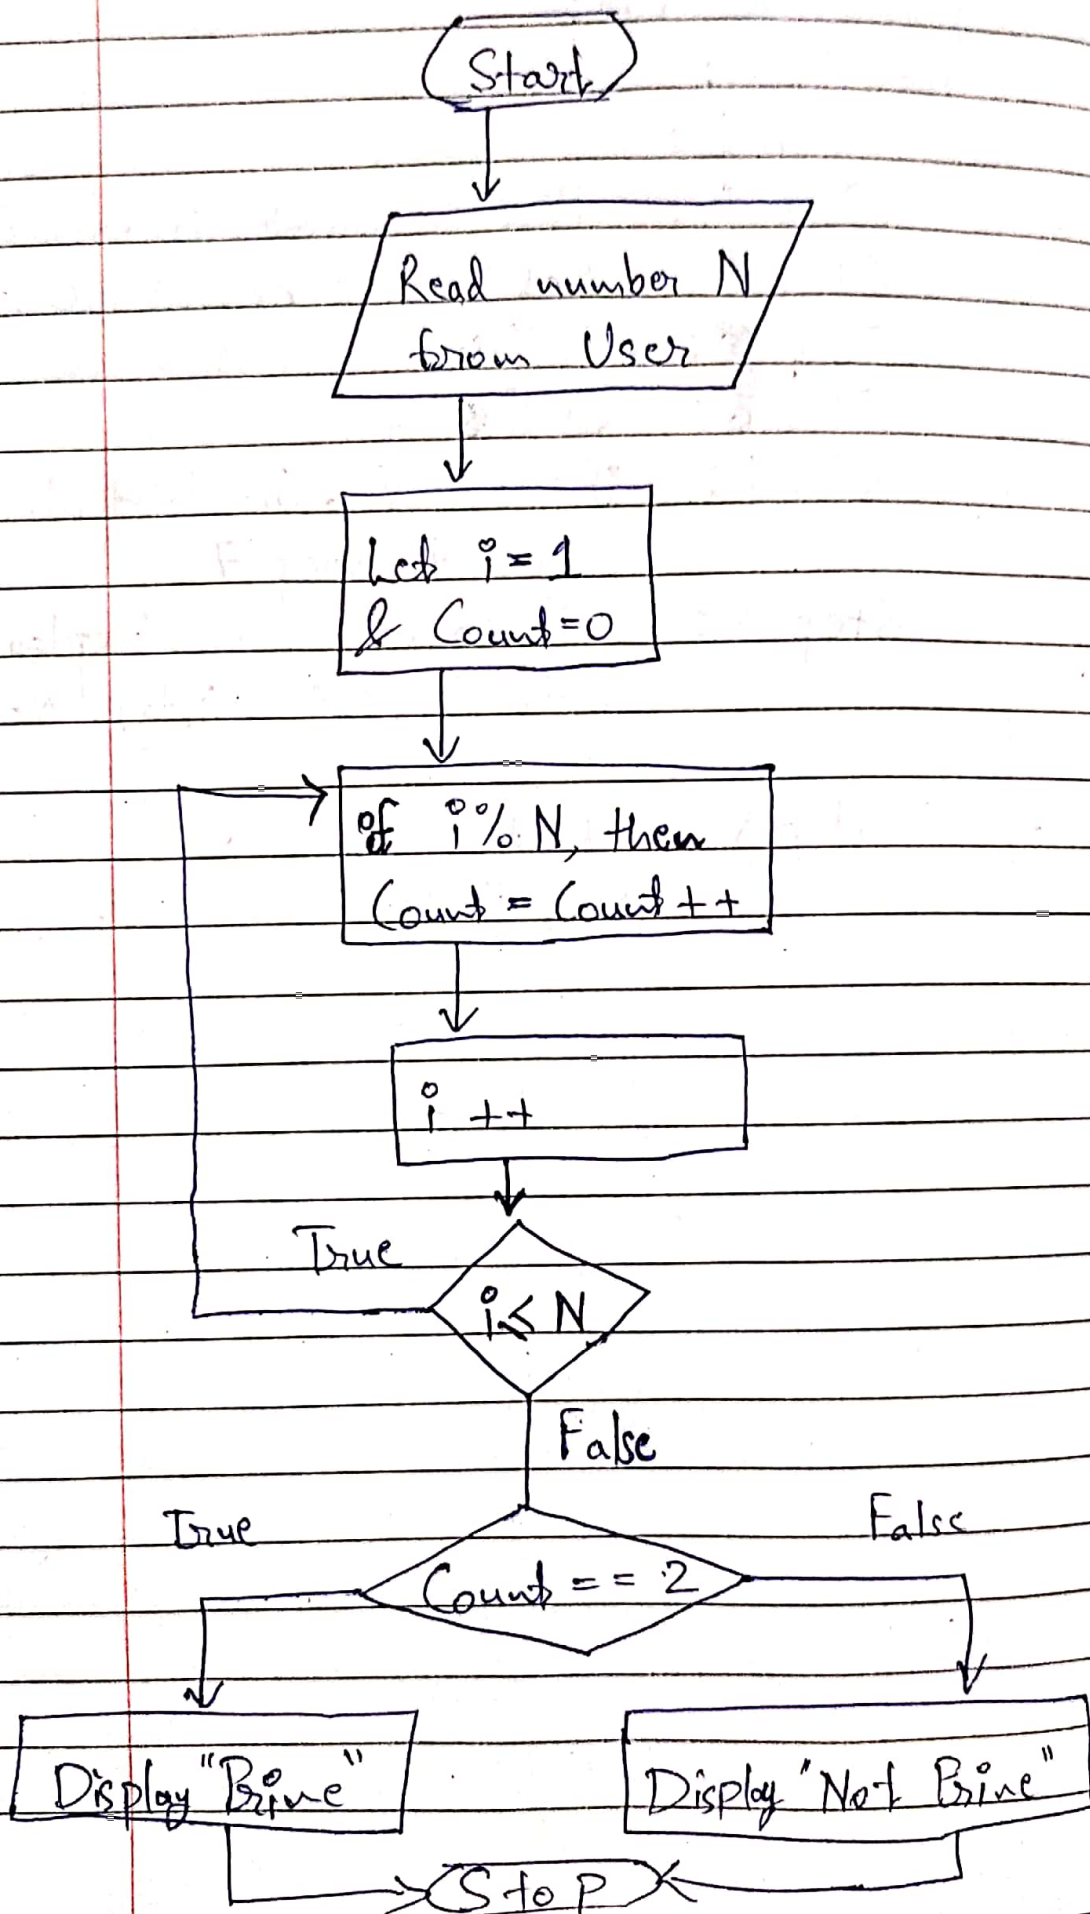 Start
Read number N
from User
Let i = 1
& Count=0
if i % N, then
Count = Count ++
i ++
True
i ≤ N
False
True
False
Count == 2
Display "Prime"
Display "Not Prime"
Stop